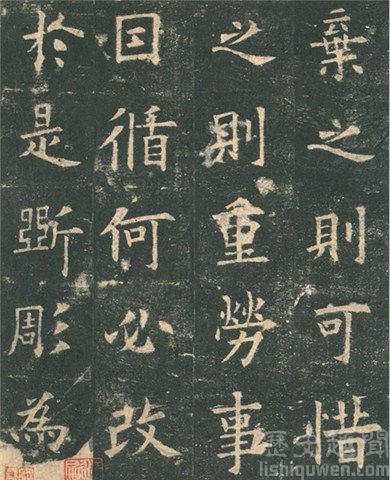 棄之則可惜
之則重勞事
因循何必改
於是斲彫為
歷史趣聞
lishiquwen.com